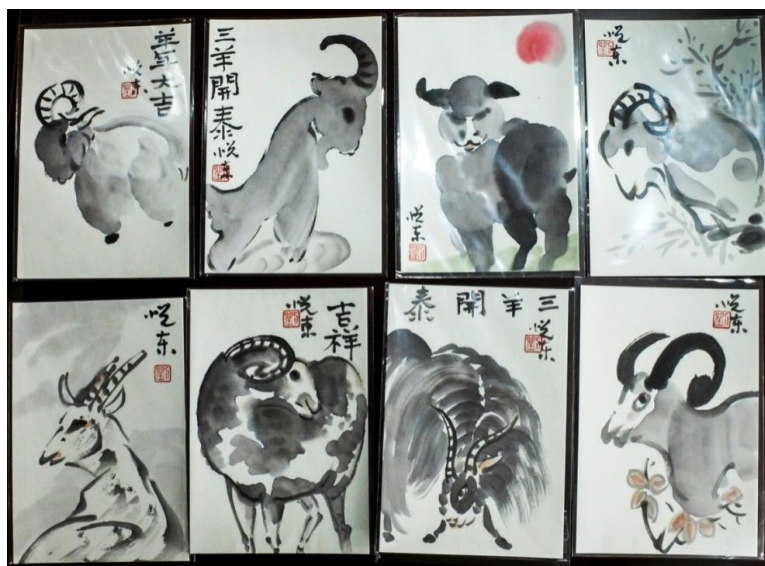 羊年大吉
悦东
三羊開泰 悦东
悦东
悦东
悦东
吉祥
悦东
三羊開泰
悦东
悦东